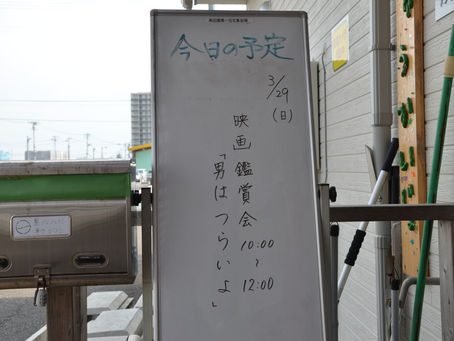 今日の予定
3/29
(日)
映画鑑賞会 10:00~12:00
「男はつらいよ」